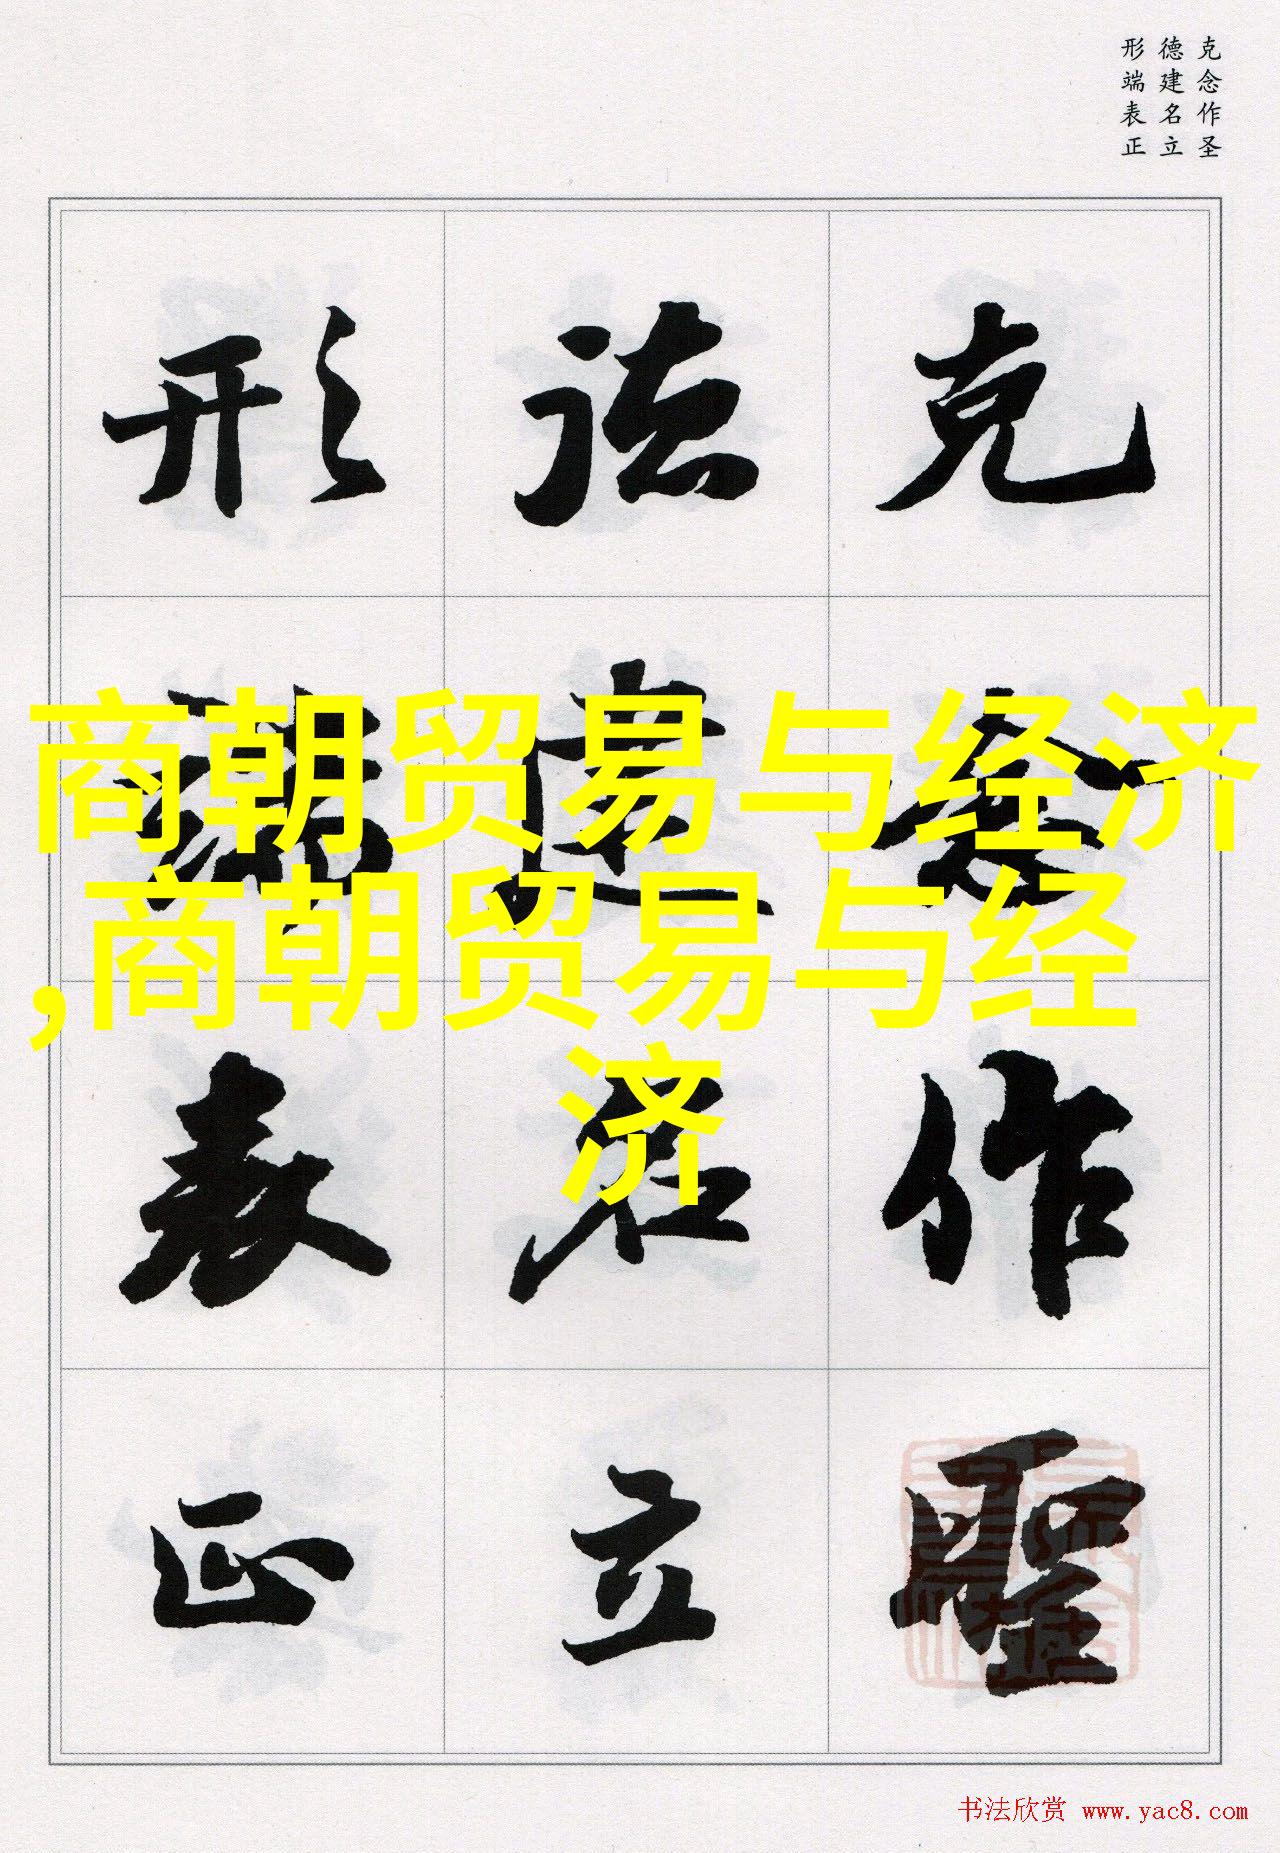 克念作圣
德建名立
形端表正
克念作聖
德建名立
形端表正
商朝贸易与经济
,商朝贸易与经
济
书法欣赏 www.yac8.com